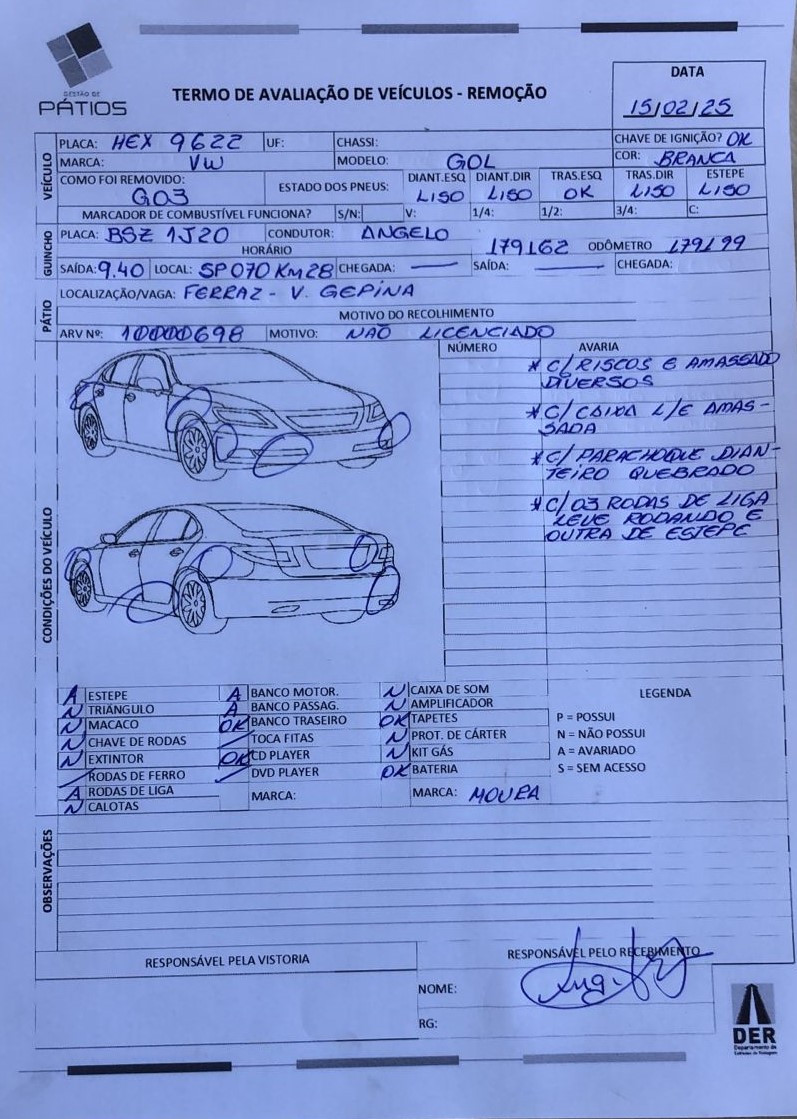 GESTÃO DE
PÁTIOS
TERMO DE AVALIAÇÃO DE VEÍCULOS - REMOÇÃO
DATA
15/02/25
VEÍCULO
PLACA: HEX 9622 UF: CHASSI: CHAVE DE IGNIÇÃO? OK
MARCA: VW MODELO: GOL COR: BRANCA
COMO FOI REMOVIDO: G03 ESTADO DOS PNEUS: DIANT.ESQ LISO DIANT.DIR LISO TRAS.ESQ OK TRAS.DIR LISO ESTEPE LISO
MARCADOR DE COMBUSTÍVEL FUNCIONA? S/N: V: 1/4: 1/2: 3/4: C:
GUINCHO
PLACA: BSZ 1J20 CONDUTOR: ANGELO
HORÁRIO 179162 ODÔMETRO 179199
SAÍDA: 9.40 LOCAL: SP070 KM28 CHEGADA: — SAÍDA: — CHEGADA:
PÁTIO
LOCALIZAÇÃO/VAGA: FERRAZ - V. GEPINA
MOTIVO DO RECOLHIMENTO
ARV Nº: 10000698 MOTIVO: NAO LICENCIADO
CONDIÇÕES DO VEÍCULO
NÚMERO AVARIA
* C/RISCOS E AMASSADO
DIVERSOS
* C/CAIXA L/E AMAS-
SADA
* C/PARACHOQUE DIAN-
TEIRO QUEBRADO
* C/03 RODAS DE LIGA
LEVE RODANDO E
OUTRA DE ESTEPE
A ESTEPE
N TRIÂNGULO
N MACACO
N CHAVE DE RODAS
N EXTINTOR
/ RODAS DE FERRO
A RODAS DE LIGA
N CALOTAS
A BANCO MOTOR.
A BANCO PASSAG.
OK BANCO TRASEIRO
/ TOCA FITAS
OK CD PLAYER
/ DVD PLAYER
MARCA:
N CAIXA DE SOM
N AMPLIFICADOR
OK TAPETES
N PROT. DE CÁRTER
N KIT GÁS
OK BATERIA
MARCA: MOURA
LEGENDA
P = POSSUI
N = NÃO POSSUI
A = AVARIADO
S = SEM ACESSO
OBSERVAÇÕES
RESPONSÁVEL PELA VISTORIA
RESPONSÁVEL PELO RECEBIMENTO
NOME:
RG:
DER
Departamento de
Estradas de Rodagem